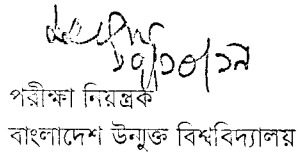 ১৭/১০/১৯
পরীক্ষা নিয়ন্ত্রক
বাংলাদেশ উন্মুক্ত বিশ্ববিদ্যালয়